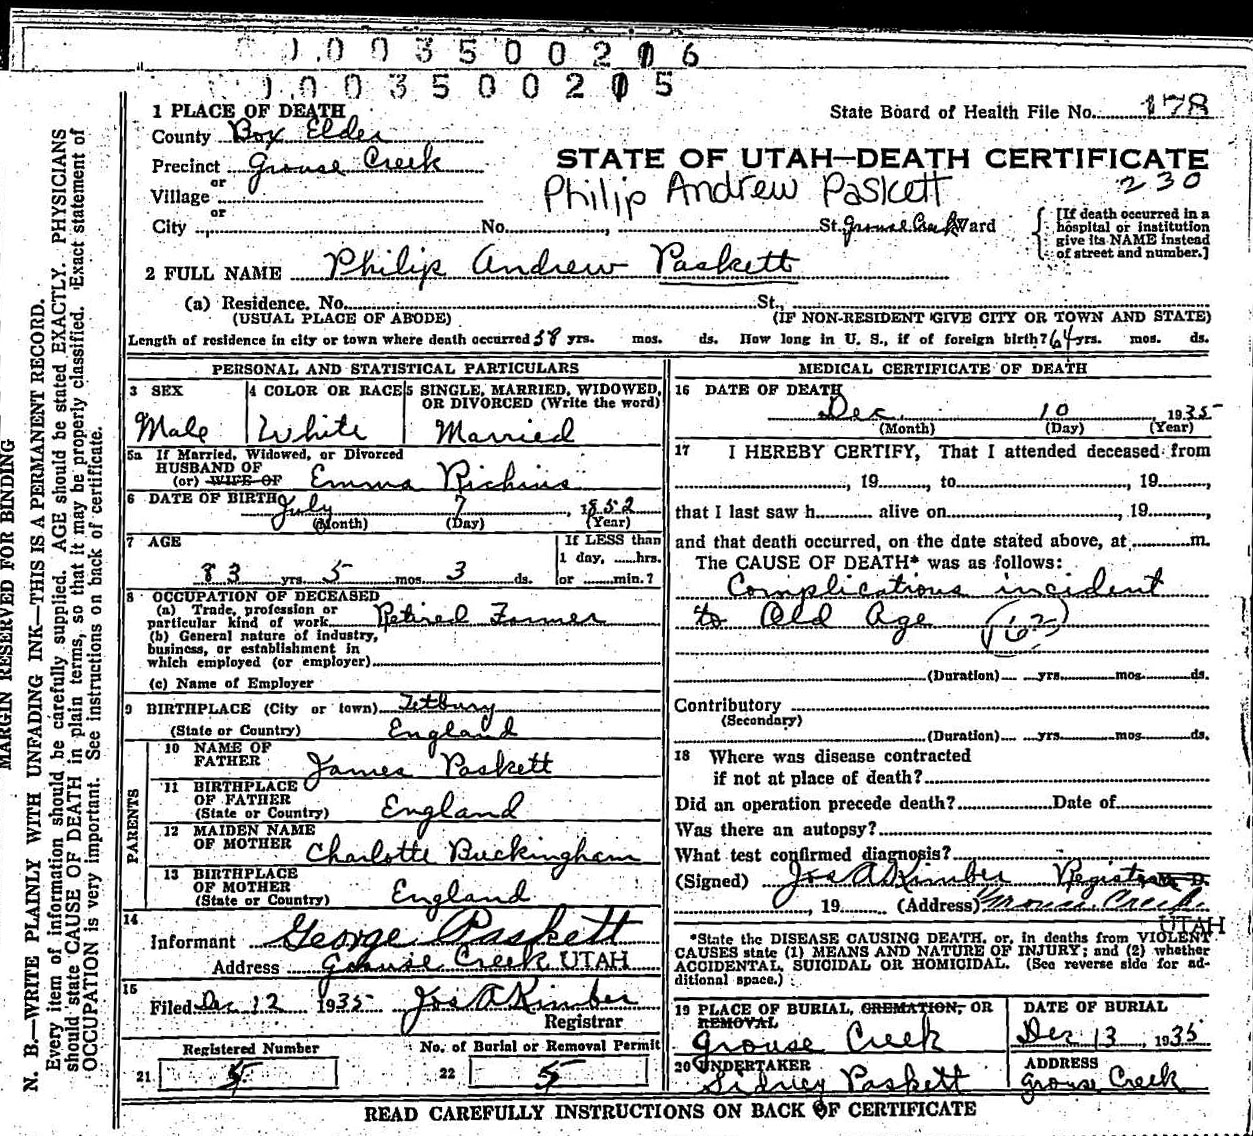 0 0 3 5 0 0 2 0 6
0 0 3 5 0 0 2 0 5
1 PLACE OF DEATH
State Board of Health File No. 178
County Box Elder
Precinct Grouse Creek
STATE OF UTAH—DEATH CERTIFICATE
230
Philip Andrew Paskett
or
Village
or
City No. St. Grouse Creek Ward
[If death occurred in a
hospital or institution
give its NAME instead
of street and number.]
2 FULL NAME Philip Andrew Paskett
(a) Residence. No. St.,
(USUAL PLACE OF ABODE) (IF NON-RESIDENT GIVE CITY OR TOWN AND STATE)
Length of residence in city or town where death occurred 58 yrs. mos. ds. How long in U. S., if of foreign birth? 64 yrs. mos. ds.
PERSONAL AND STATISTICAL PARTICULARS
3 SEX
Male
4 COLOR OR RACE
White
5 SINGLE, MARRIED, WIDOWED,
OR DIVORCED (Write the word)
Married
5a If Married, Widowed, or Divorced
HUSBAND OF
(or) WIFE OF Emma Richins
6 DATE OF BIRTH July 7, 1852
(Month) (Day) (Year)
7 AGE
83 yrs. 5 mos. 3 ds.
If LESS than
1 day, hrs.
or min.?
8 OCCUPATION OF DECEASED
(a) Trade, profession or
particular kind of work Retired Farmer
(b) General nature of industry,
business, or establishment in
which employed (or employer)
(c) Name of Employer
9 BIRTHPLACE (City or town) Tetbury
(State or Country) England
PARENTS
10 NAME OF
FATHER James Paskett
11 BIRTHPLACE
OF FATHER
(State or Country) England
12 MAIDEN NAME
OF MOTHER Charlotte Buckingham
13 BIRTHPLACE
OF MOTHER
(State or Country) England
14
Informant George Paskett
Address Grouse Creek UTAH
15
Filed Dec 12 1935 Jos A Kimber
Registrar
Registered Number
21 5
No. of Burial or Removal Permit
22 5
MEDICAL CERTIFICATE OF DEATH
16 DATE OF DEATH
Dec 10, 1935
(Month) (Day) (Year)
17 I HEREBY CERTIFY, That I attended deceased from
, 19, to, 19,
that I last saw h alive on, 19,
and that death occurred, on the date stated above, at m.
The CAUSE OF DEATH* was as follows:
Complications incident
to Old Age (162)
(Duration) yrs. mos. ds.
Contributory
(Secondary)
(Duration) yrs. mos. ds.
18 Where was disease contracted
if not at place of death?
Did an operation precede death? Date of
Was there an autopsy?
What test confirmed diagnosis?
(Signed) Jos A Kimber Registrar M. D.
, 19 (Address) Grouse Creek
UTAH
*State the DISEASE CAUSING DEATH, or, in deaths from VIOLENT
CAUSES state (1) MEANS AND NATURE OF INJURY; and (2) whether
ACCIDENTAL, SUICIDAL OR HOMICIDAL. (See reverse side for ad-
ditional space.)
19 PLACE OF BURIAL, CREMATION, OR
REMOVAL
Grouse Creek
DATE OF BURIAL
Dec 13, 1935
20 UNDERTAKER
Sidney Paskett
ADDRESS
Grouse Creek
READ CAREFULLY INSTRUCTIONS ON BACK OF CERTIFICATE
MARGIN RESERVED FOR BINDING
N. B.—WRITE PLAINLY WITH UNFADING INK—THIS IS A PERMANENT RECORD.
Every item of information should be carefully supplied. AGE should be stated EXACTLY. PHYSICIANS
should state CAUSE OF DEATH in plain terms, so that it may be properly classified. Exact statement of
OCCUPATION is very important. See instructions on back of certificate.